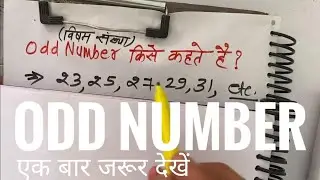 (विषम संख्या)
Odd Number किसे कहते है?
⇒ 23, 25, 27, 29, 31, etc.
ODD NUMBER
एक बार जरूर देखें